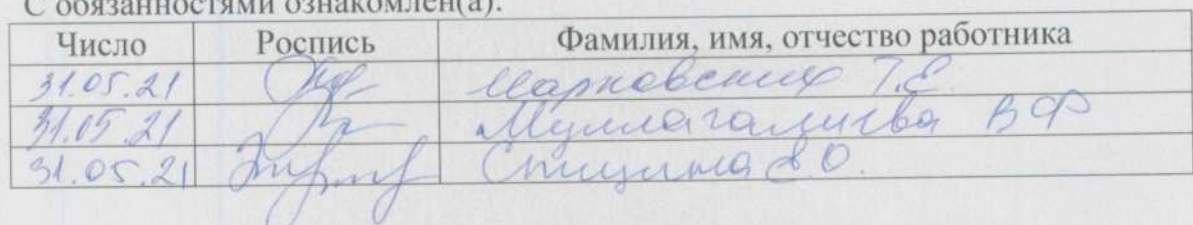 С обязанностями ознакомлен(а):
Число Роспись Фамилия, имя, отчество работника
31.05.21 Марковских Т.Е.
31.05.21 Муллагалиева В Ф
31.05.21 О.